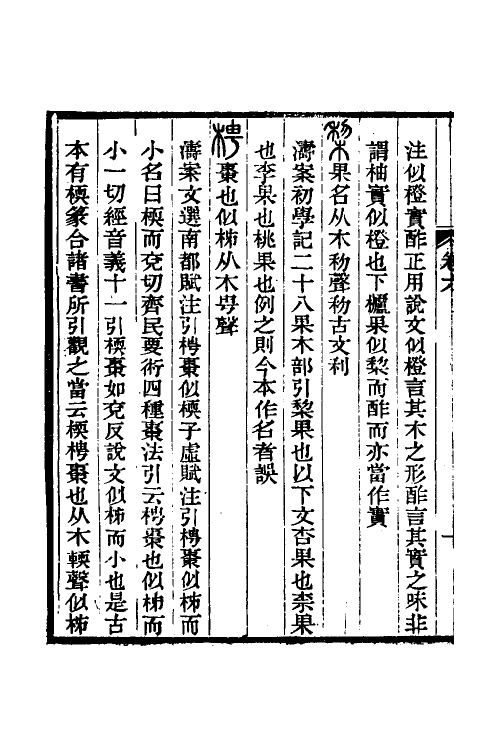 注似橙實酢正用說文似橙言其木之形酢言其實之味非
謂柚實似橙也下樝果似棃而酢而亦當作實
棃果名从木𥝢聲𥝢古文利
濤案初學記二十八果木部引棃果也以下文杏果也柰果
也李果也桃果也例之則今本作名者誤
梬棗也似柹从木甹聲
濤案文選南都賦注引梬棗似㮕子虛賦注引梬棗似柹而
小名曰㮕而兖切齊民要術四種棗法引云梬棗也似柹而
小一切經音義十一引㮕棗如兖反說文似柹而小也是古
本有㮕篆合諸書所引觀之當云㮕梬棗也从木耎聲似柹